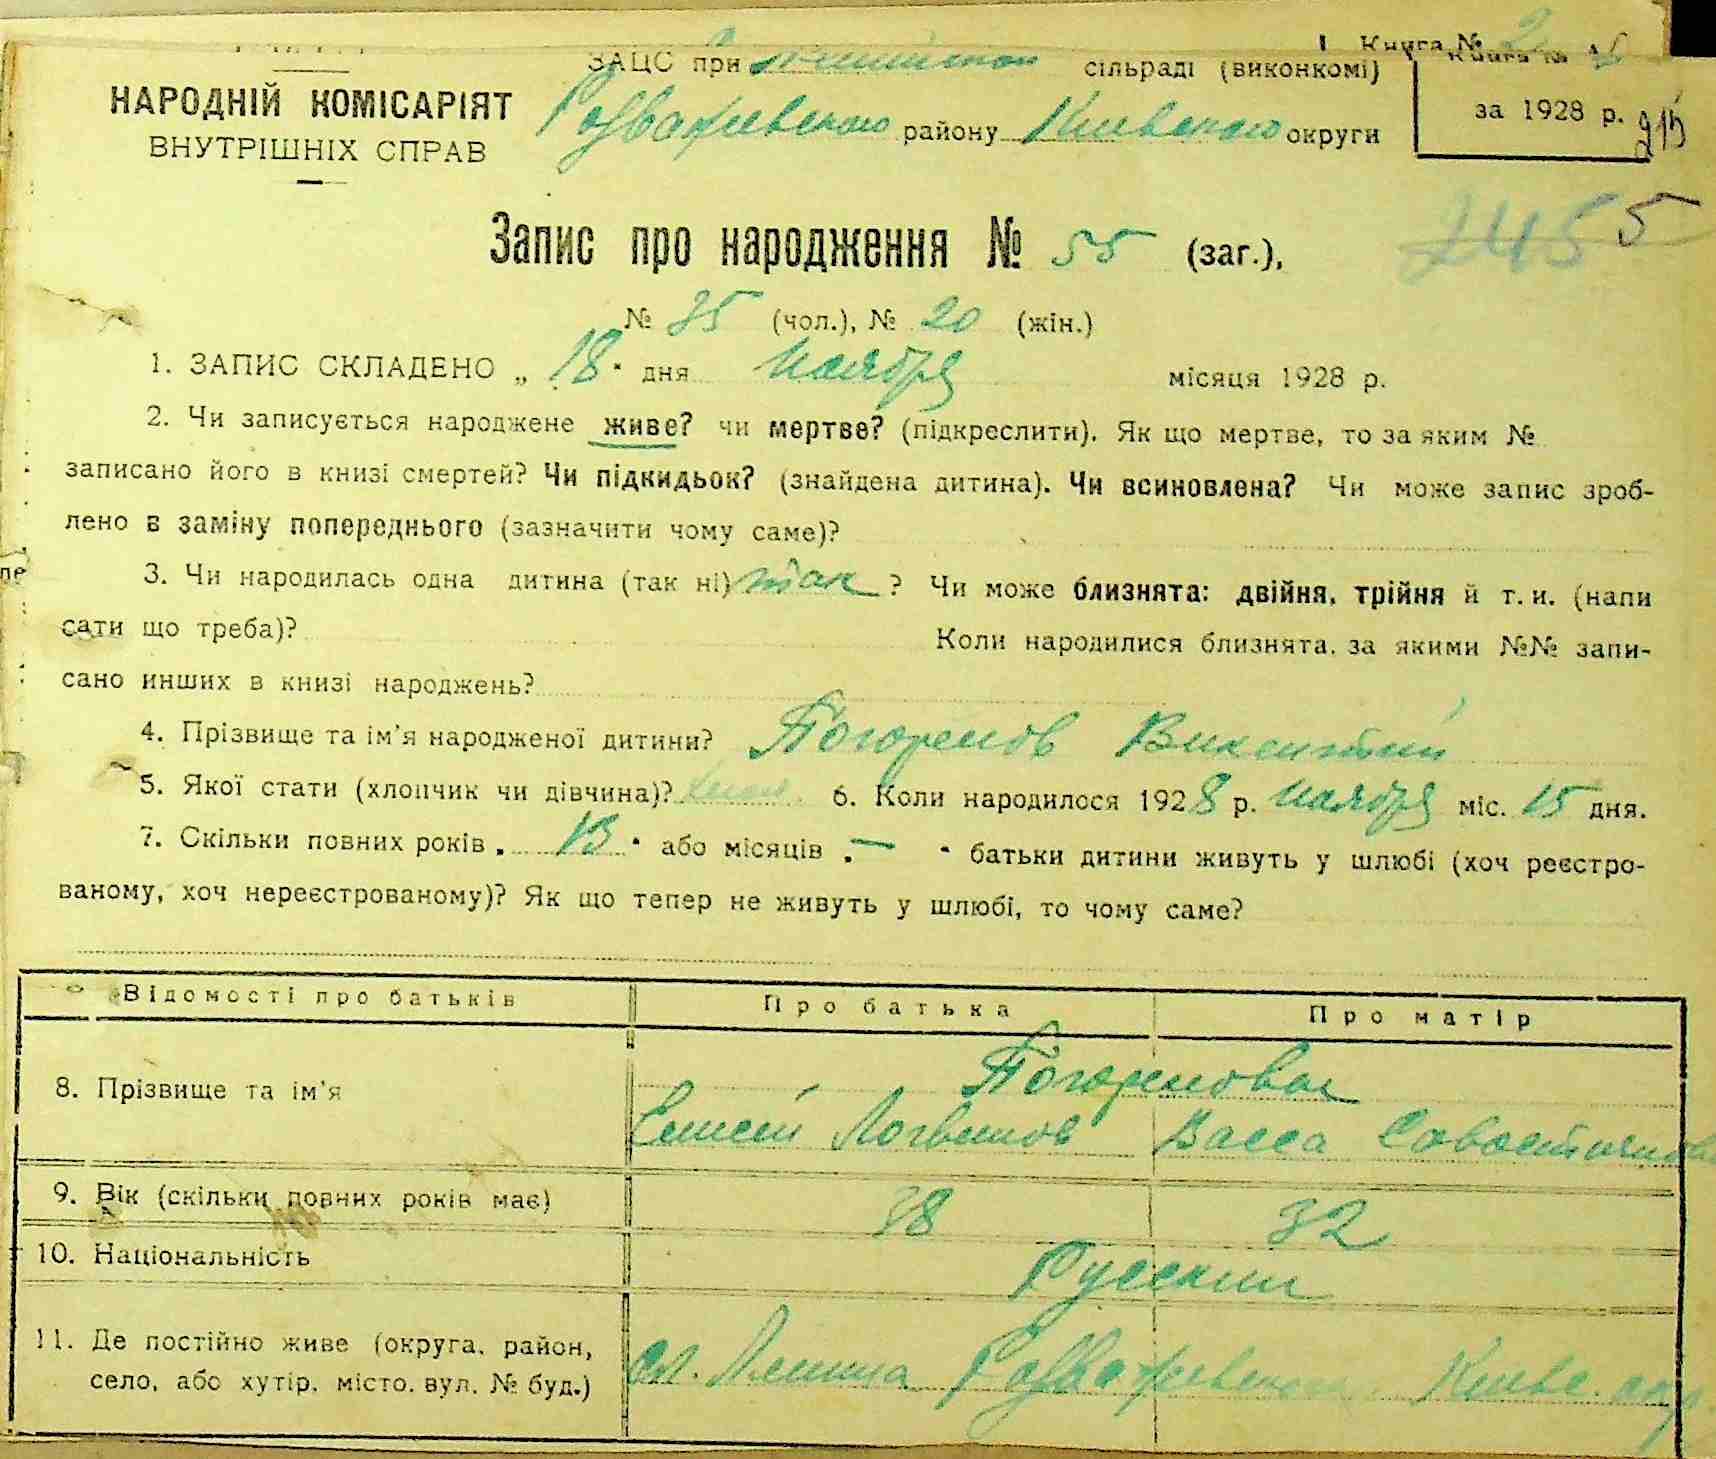 Книга №
ЗАЦС при сільраді (виконкомі)
Книга №
НАРОДНІЙ КОМІСАРІЯТ
ВНУТРІШНІХ СПРАВ
Розважевского району Киевского округи
за 1928 р.
215
2455
Запис про народження № 55 (заг.),
№ 35 (чол.), № 20 (жін.)
1. ЗАПИС СКЛАДЕНО „ 18 " дня Ноября місяця 1928 р.
2. Чи записується народжене живе? чи мертве? (підкреслити). Як що мертве, то за яким №
записано його в книзі смертей? Чи підкидьок? (знайдена дитина). Чи всиновлена? Чи може запис зроб-
лено в заміну попереднього (зазначити чому саме)?
3. Чи народилась одна дитина (так ні) так ? Чи може близнята: двійня, трійня й т. и. (напи
сати що треба)? Коли народилися близнята, за якими №№ запи-
сано инших в книзі народжень?
4. Прізвище та ім'я народженої дитини? Погорелов Викентий
5. Якої стати (хлопчик чи дівчина)? 6. Коли народилося 1928 р. Ноября міс. 15 дня.
7. Скільки повних років „ 13 " або місяців „ — " батьки дитини живуть у шлюбі (хоч реєстро-
ваному, хоч нереєстрованому)? Як що тепер не живуть у шлюбі, то чому саме?
Відомості про батьків Про батька Про матір
Погореловы
8. Прізвище та ім'я
Елисей Логвинов Васса Савостьянова
9. Вік (скільки повних років має) 38 32
10. Національність Русский
11. Де постійно живе (округа, район,
село, або хутір, місто, вул. № буд.) Розважевского Киевс. окр